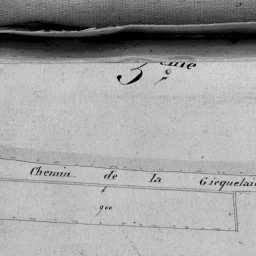 3ème
Chemin de la Gicquelai
900